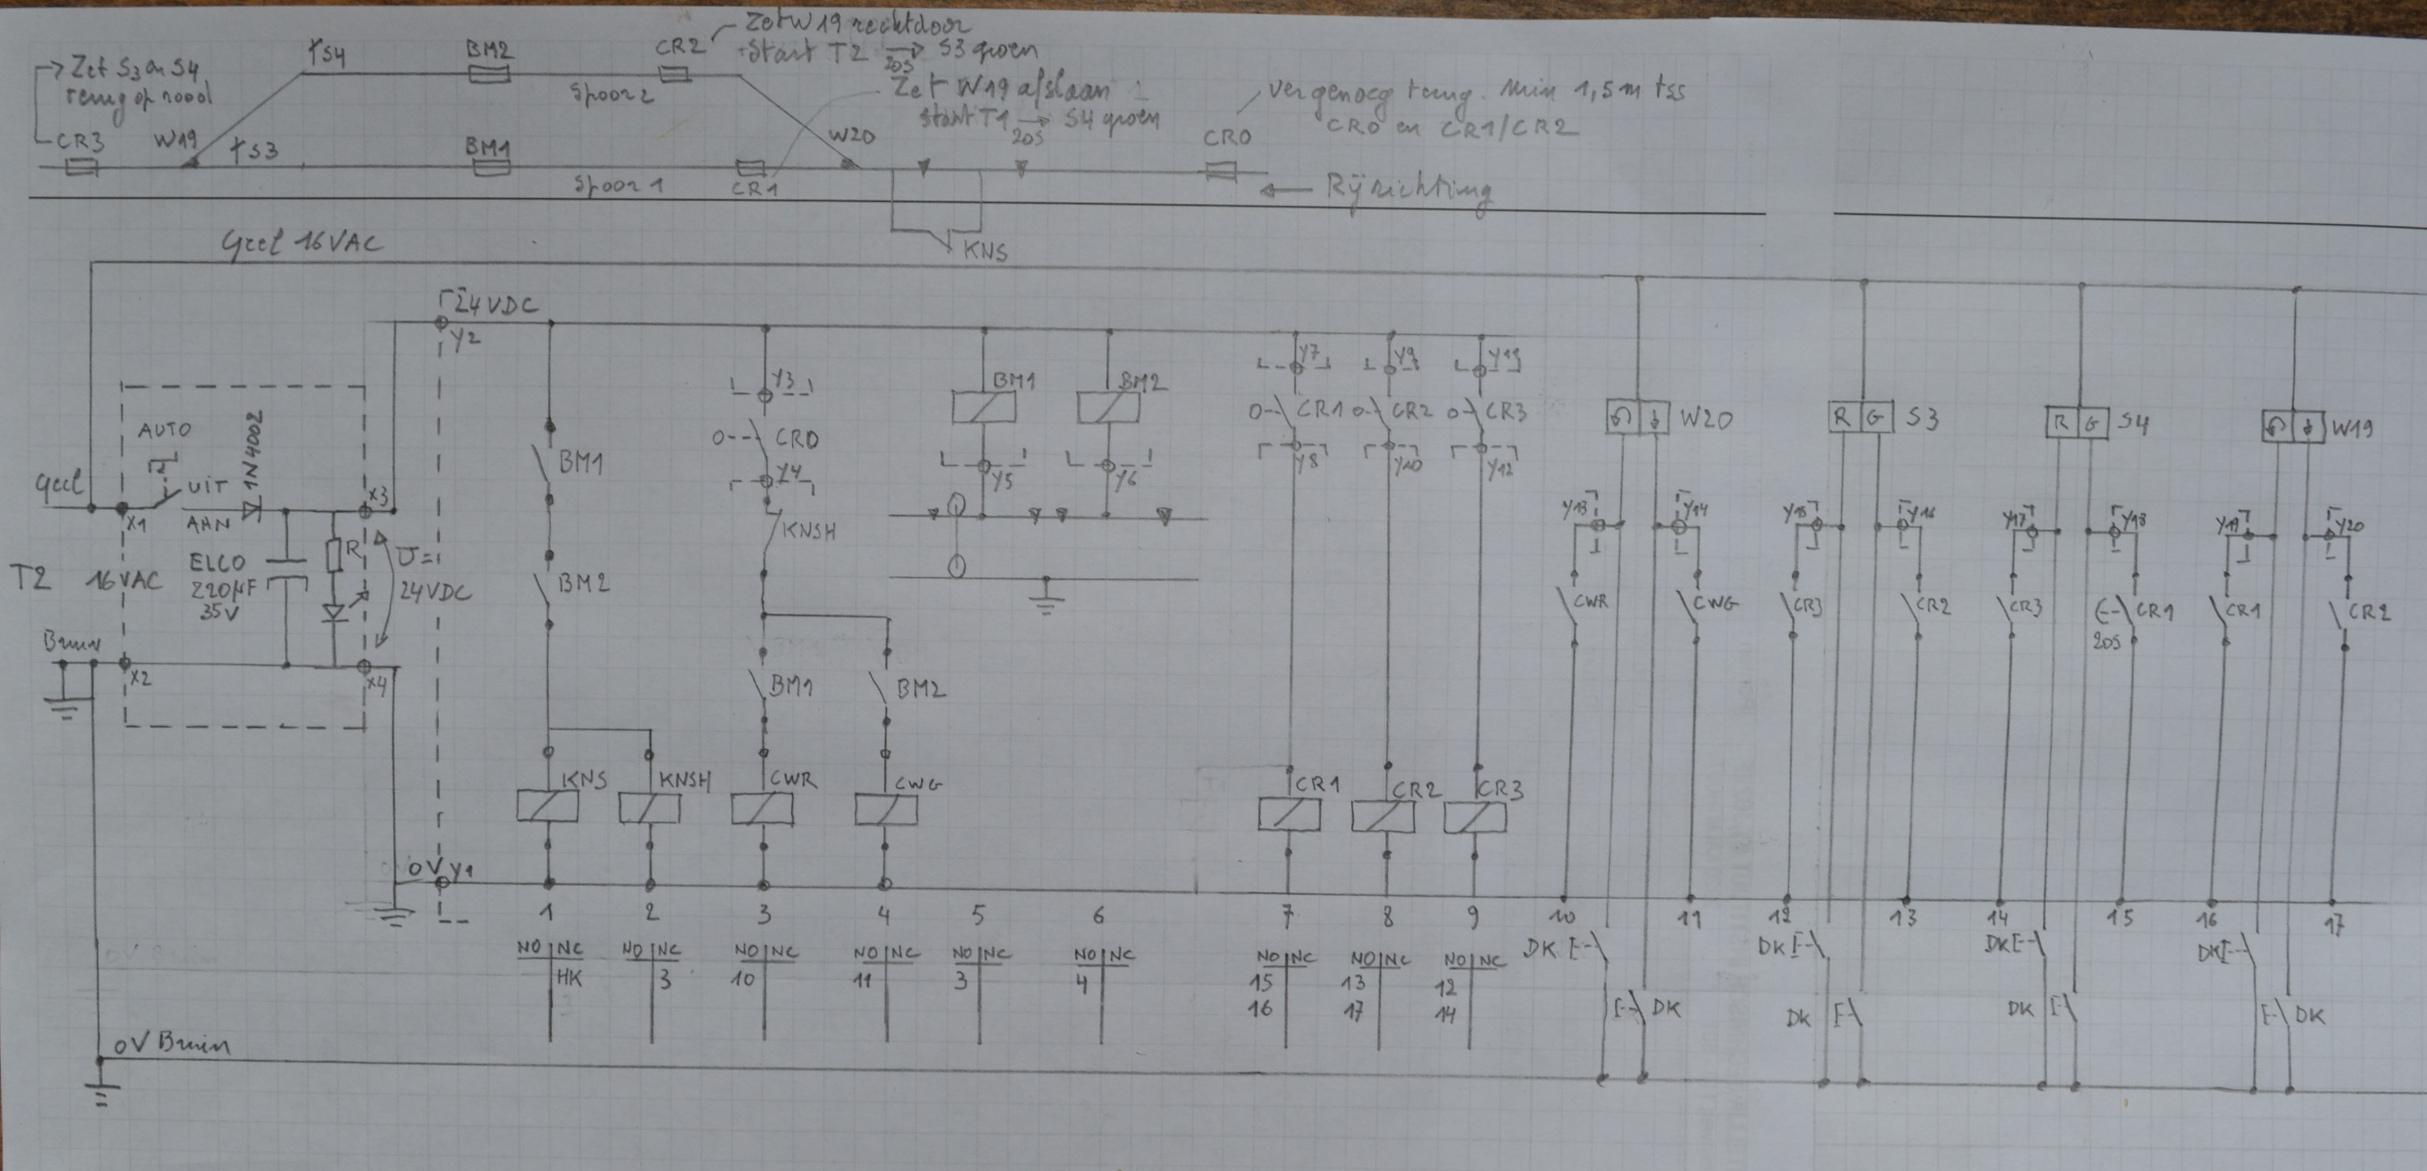 Zet W19 rechtdoor
Start T2 → S3 groen
20s
Zet S3 en S4
terug op rood
S4
BM2
CR2
Spoor 2
Zet W19 afslaan
Start T1 → S4 groen
20s
Ver genoeg terug. Min 1,5m tss
CR0 en CR1/CR2
CR3
W19
S3
BM1
Spoor 1
CR1
W20
CR0
← Rijrichting
KNS
Geel 16VAC
24VDC
Y2
AUTO
UIT
AAN
1N4002
Geel
X1
X3
T2
16VAC
ELCO
220µF
35V
R
U=
24VDC
Bruin
X2
X4
0V Y1
BM1
BM2
KNS
KNSH
Y3
CR0
Y4
KNSH
BM1
BM2
CWR
CWG
BM1
BM2
Y5
Y6
Y7
Y9
Y11
CR1
CR2
CR3
Y8
Y10
Y12
CR1
CR2
CR3
W20
R G S3
R G S4
W19
Y13
Y14
Y15
Y16
Y17
Y18
Y19
Y20
CWR
CWG
CR3
CR2
CR3
CR1
20s
CR1
CR2
1 2 3 4 5 6 7 8 9 10 11 12 13 14 15 16 17
NO NC
HK
NO NC
3
NO NC
10
NO NC
11
NO NC
3
NO NC
4
NO NC
15
16
NO NC
13
17
NO NC
12
14
DK
DK
DK
DK
DK
DK
DK
DK
0V Bruin